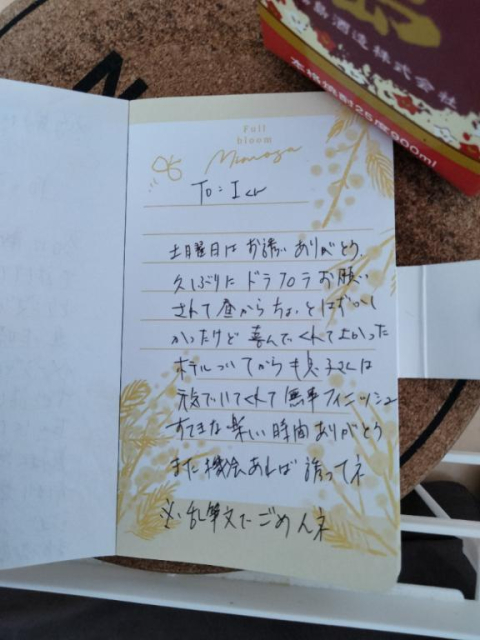 島酒造株式会社
本格焼酎25度900ml
N
Full
bloom
Mimosa
To: Iくん
土曜日はお誘いありがとう。
久しぶりにドラフロラお願い
されて昼からちょっとはずかし
かったけど喜んでくれてよかった
ホテルついてからも息子さんは
元気でいてくれて無事フィニッシュ
すてきな楽しい時間ありがとう
また機会あれば誘ってネ
※乱筆文でごめんネ